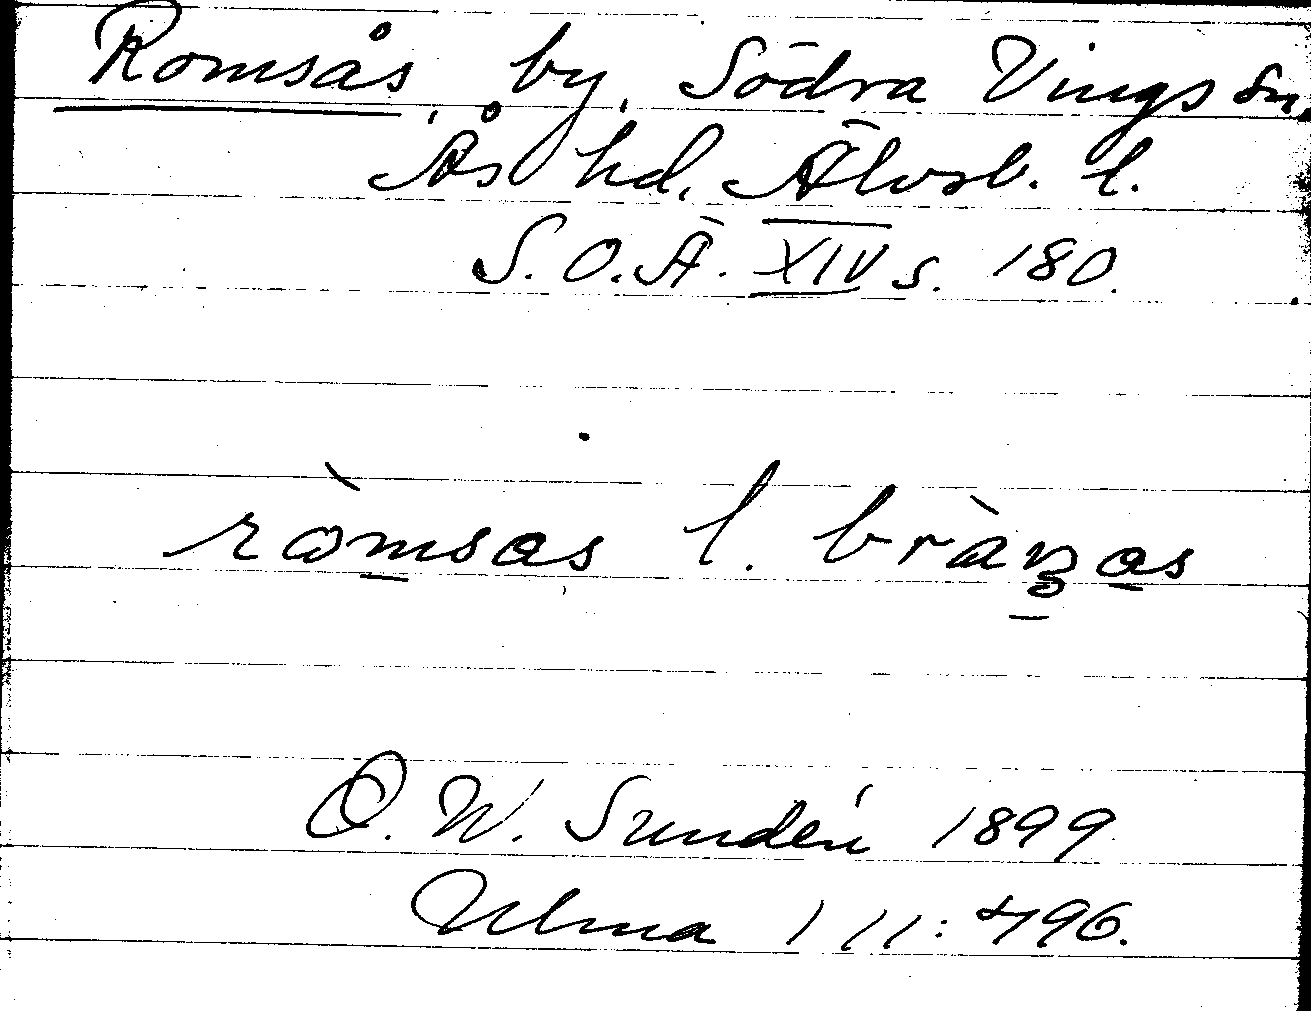 Romsås, by, Södra Vings sn,
Ås hd, Älvsb. l.
S.O.Ä. XIV s. 180.
ròmsas l. bràn̥as
D. W. Sundén 1899
Ulma 111:496.